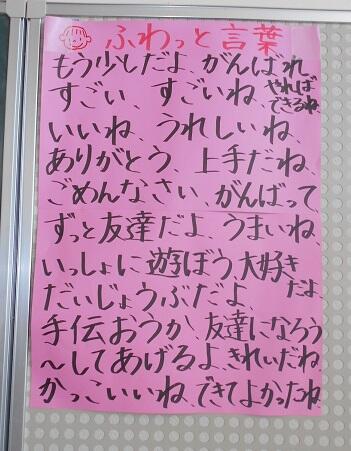 ふわっと言葉
もう少しだよ、がんばれ
すごい、すごいね、やれば
できるね
いいね、うれしいね、
ありがとう、上手だね、
ごめんなさい、がんばって
ずっと友達だよ、うまいね、
いっしょに遊ぼう大好き
だいじょうぶだよ、だよ、
手伝おうか、友達になろう
～してあげるよ、きれいだね
かっこいいね、できてよかったね、